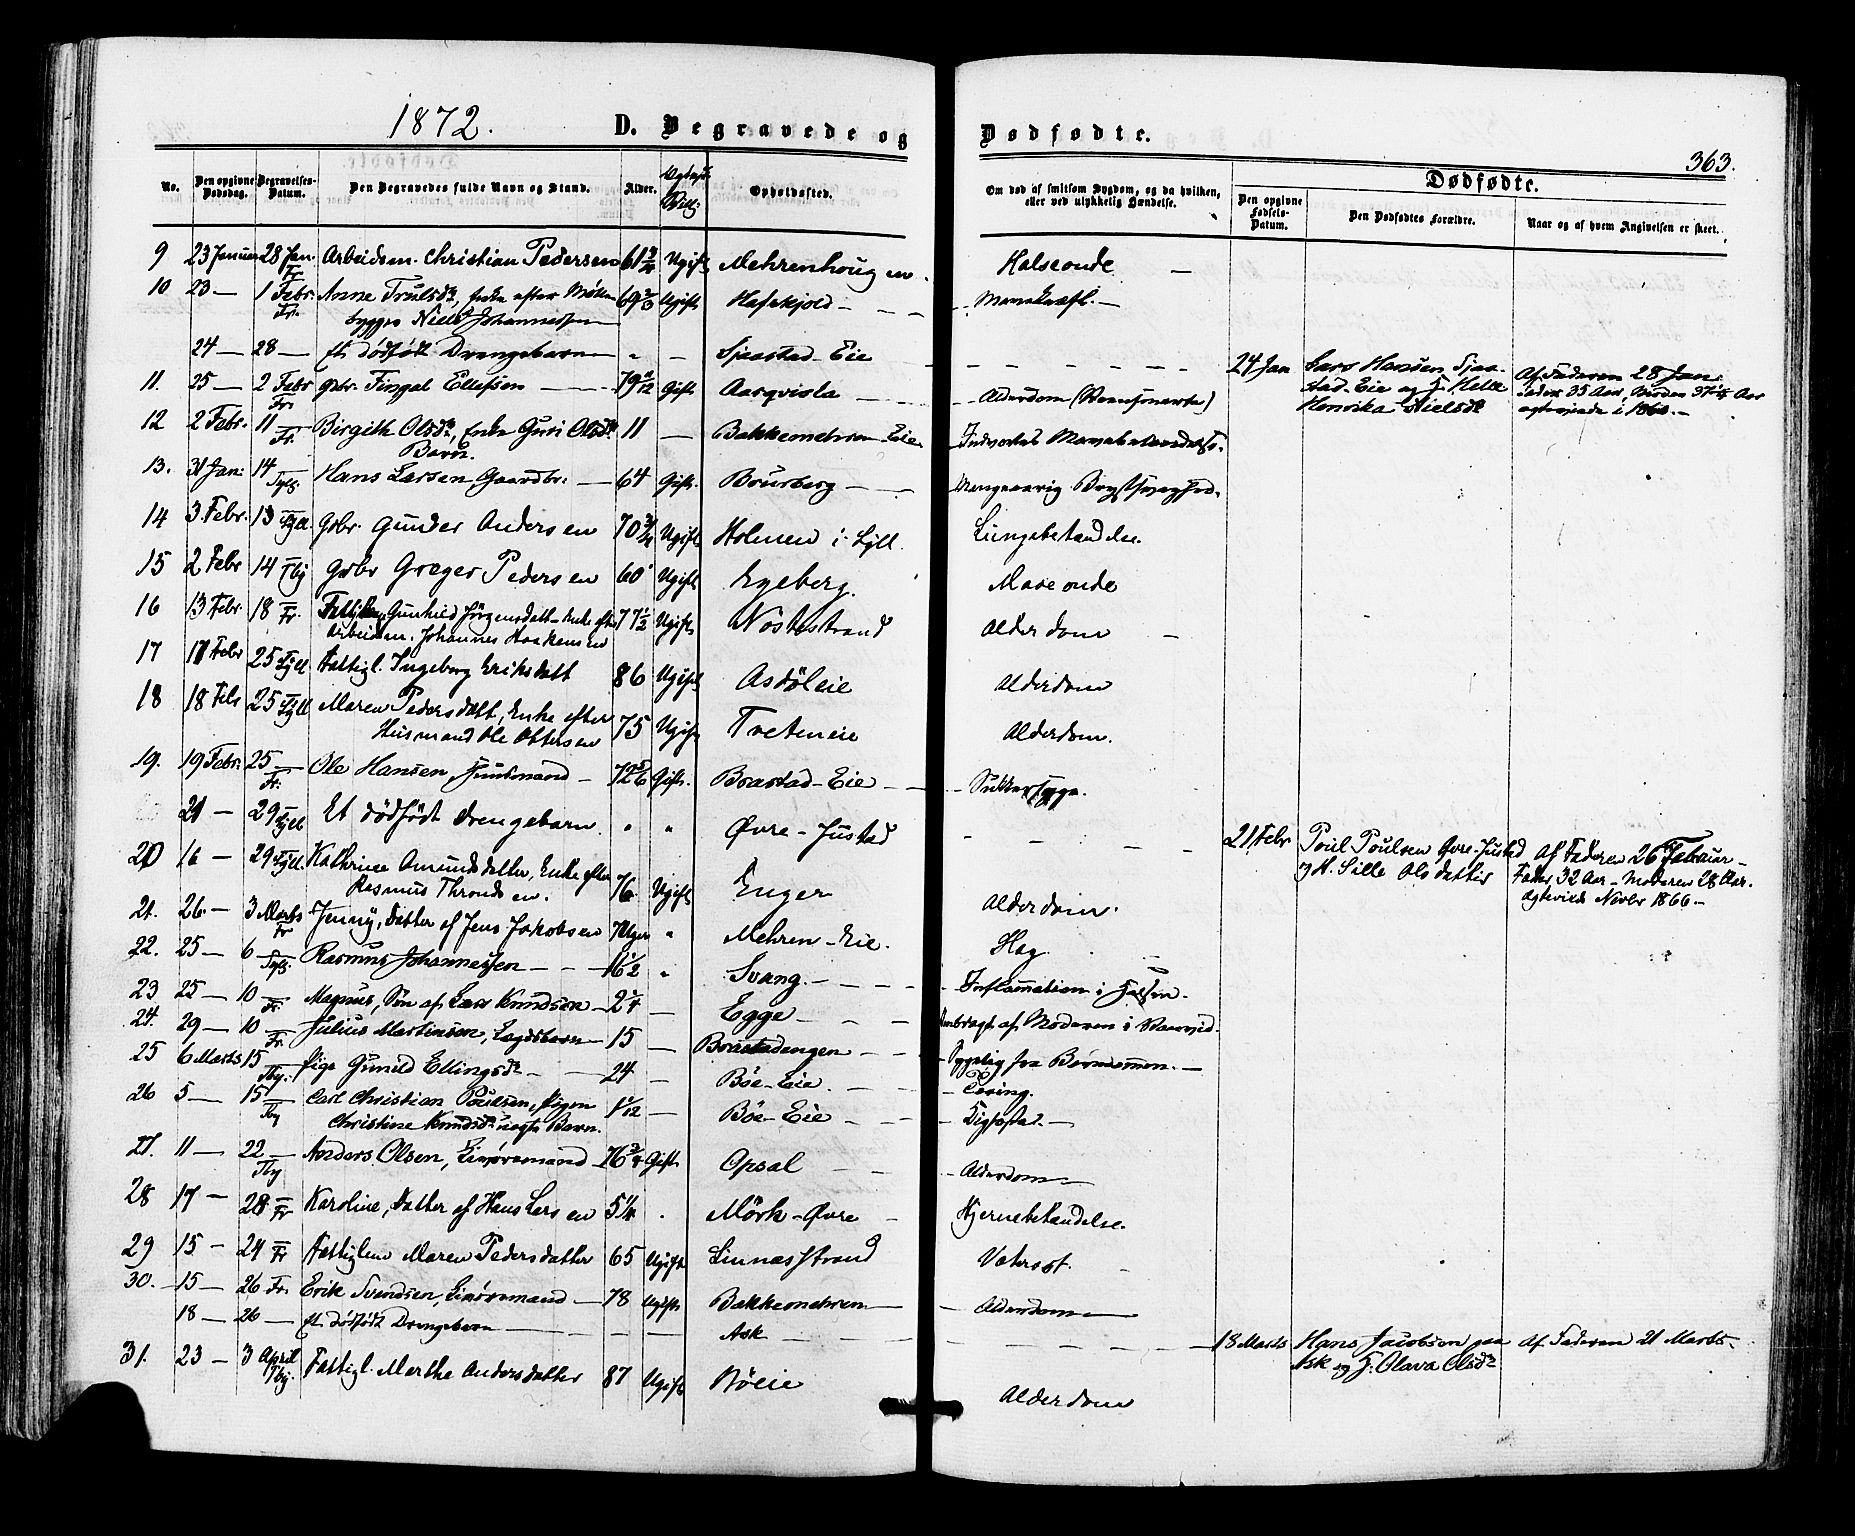 1872.
D. Begravede og Dødfødte.
363.
No. Den opgivne Dødsdag. Begravelses-Datum. Den Begravedes fulde Navn og Stand. Alder. Opholdssted. Om død af smitsom Sygdom, og da hvilken, eller ved ulykkelig Hændelse. Dødfødte. Den opgivne Fødsels-Datum. Den Dødfødtes Forældre. Naar og af hvem Angivelsen er skeet.
9 23 Januar 28 Jan. Fr. Arbeidsm. Christian Pedersen 61 3/4 Ugift Mehrenhoug Halseonde —
10 23 — 1 Febr. Fr. Anne Trulsdr, Enke efter Mølle
bygger Niels Johannessen 69 2/3 Ugift Hafskjold —
24 — 28 — Et dødfødt Drengebarn " — Sjaastad-Eie 24 Jan Lars Hansen Sjaa-
stad-Eie og H. Helle
Henrika Nielsdr Af Faderen 28 Jan.
Fader 35 Aar, Moder 37 Aar
ægteviede i 1860. —
11. 25 — 2 Febr Fr. Gbr. Fingal Ellefsen 79 11/12 Gift Aarqvisla Alderdom
12 2 Febr. 11 — Fr. Birgith Olsdr, Enke Guri Olsdr
Barn. 11 — Bakkemehren-Eie
13. 31 Jan: 14 — Hans Larsen, Gaardbr. — 64 Gift. Bourberg — Mangeaarig Brystsvaghed.
14 3 Febr. 13 Gbr. Gunder Andersen 70 3/4 Ugift Holmen i Syll. Lungebetændelse.
15 2 Febr 14 Tby Gbr Greger Pedersen 60 Ugift Egeberg. Maveonde
16 13 Febr. 18 Fr. Gunhild Jörgensdatt. Enke efter
Arbeidsm. Johannes Haakensen 77 1/2 Ugift Nöstestrand Alderdom —
17 17 Febr 25 Syll Fattigl. Ingeborg Eriksdatt 86 Ugift Asdöleie Alderdom
18 18 Feb 25 Syll Maren Pedersdatt, Enke efter
Husmand Ole Ottersen 75 Ugift Treteneie Alderdom.
19. 19 Febr. 25 — Fr. Ole Hansen, Huusmand — 72 5/6 Gift. Braastad-Eie — Sukkersyge.
21 — 29 Syll Et dödfödt Drengebarn. " " Øvre-Justad 21 Febr Poul Poulsen Øvre-Justad
og H. Sille Olsdatter Af Faderen 26 Februar —
Fader 32 Aar — Moderen 28 Aar.
Ægteviede Novbr 1866 —
20 16 — 29 Syll Kathrine Amundsdatter, Enke efter
Rasmus Thronds en. 76 Ugift Enger Alderdom.
21. 26. — 3 Marts Fr Jenny, Datter af Jens Jakobsen 7 Uger " Mehren-Eie.
22. 25 — 6 — Rasmus Johannessen — 16 1/2 " Svang — Inflammation i Halsen.
23 25 — 10 — Fr. Magnus, Søn af Lars Knudsen — 2 1/4 — Egge —
24. 29 — 10 — Fr. Julius Martinsen, Lægdsbarn — 15 — Braastadengen —
25 6 Marts 15 — Tby. Pige Gunild Ellingsdr — 24 — Böe-Eie. — Tæring.
26 5 — 15 — Tby Carl Christian Poulsen, Pigen
Christine Knudsdr uægte Barn. 1 1/12 — Böe-Eie —
27. 11 — 22 — Tby Anders Olsen, Livøremand 76 3/4 Gift. Opsal — Alderdom —
28 17 — 28 Fr Karoline, Datter af Hans Larsen 5 1/4 Mörk-Øvre — Hjernebetændelse.
29 15 — 24 Fr Fattiglem Maren Pedersdatter 65 Ugift Linnesstrand Vatersot.
30. 15 — 26 Fr. Erik Svendsen, Livøremand — 78 Ugift Bakkemehren — Alderdom —
18 — 26 — Et dødfødt Drengebarn — Ask — 18 Marts Hans Jacobsen paa
Ask og H: Olava Olsdr Af Faderen 21 Marts —
31. 23 — 3 April Tby. Fattigl. Marthe Andersdatter 87 Ugift Böeie Alderdom